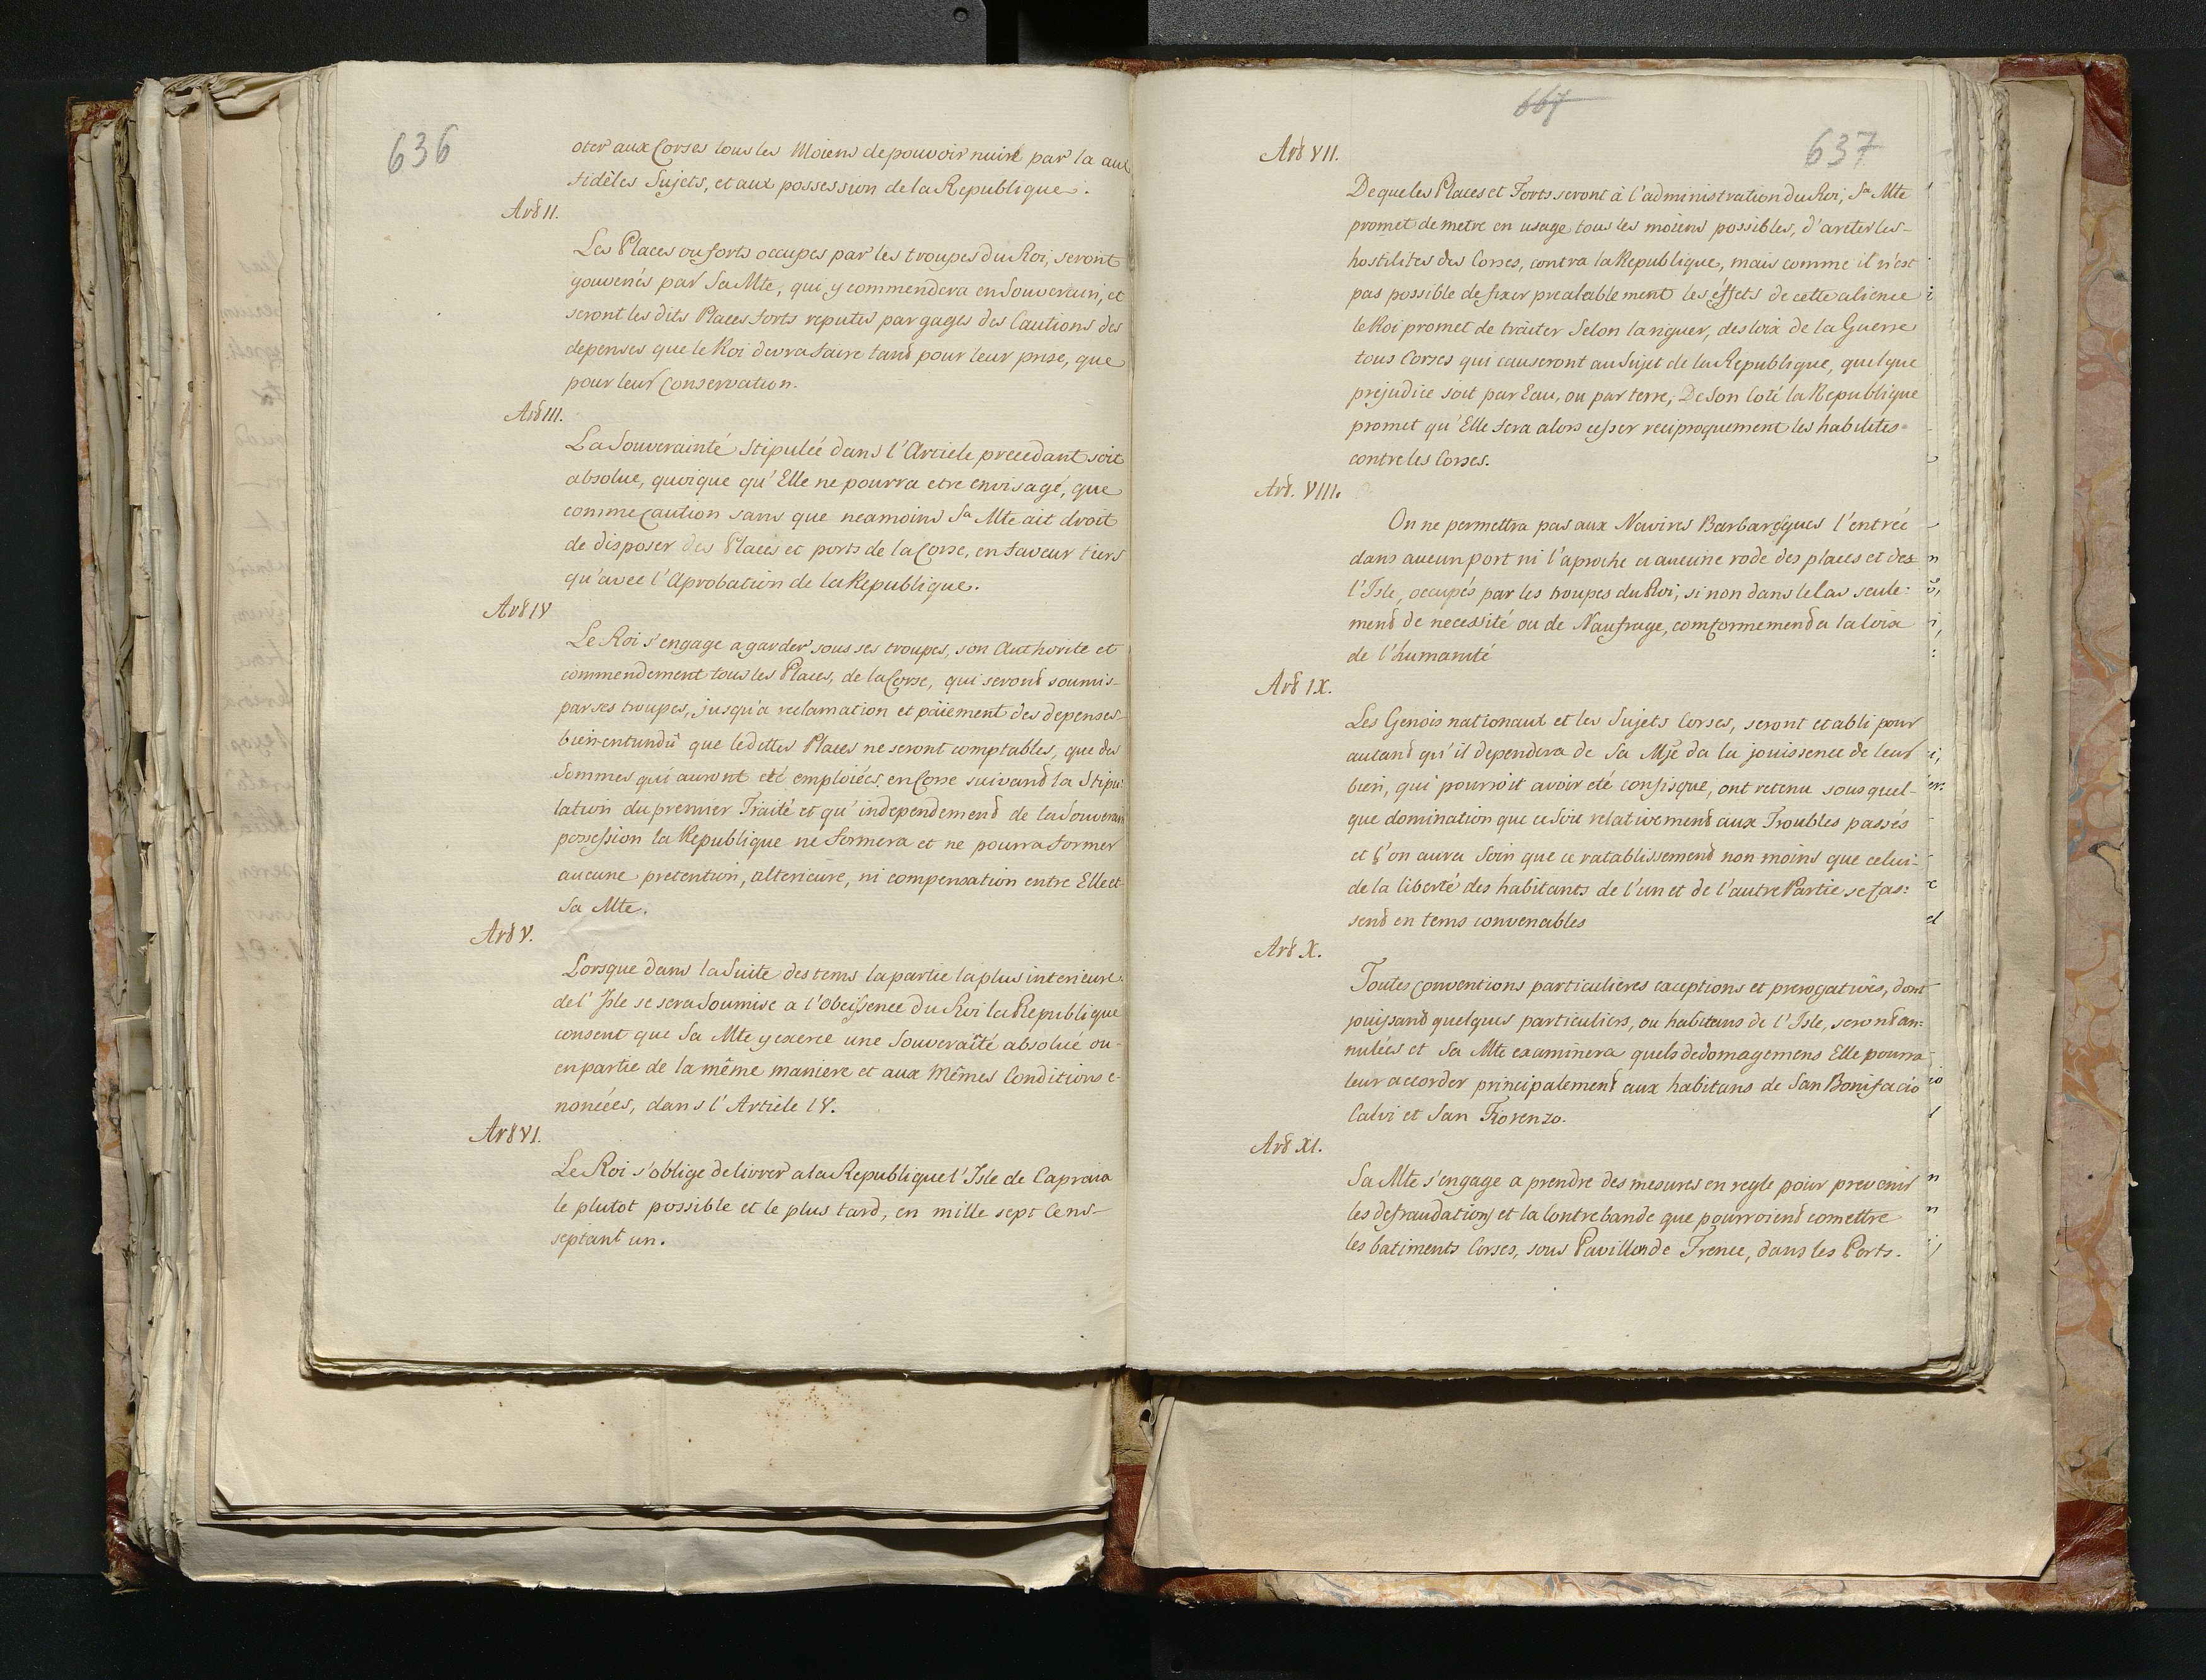 636
oter aux Corses tous les Moiens de pouvoir nuire par la aux
fidêles Sujets, et aux possession de la Republique.
Art II.
Les Places ou forts occupes par les troupes du Roi, seront
gouvenés par Sa Mte, qui y commendera en Souverain, et
seront les dits Places forts reputés par gages des Cautions des
depenses que le Roi devra faire tant pour leur prise, que
pour leur Conservation.
Art III.
La Souverainté Stipulée dans l'Article precedant soit
absolue, quoique qu'Elle ne pourra etre envisagé, que
comme Caution sans que neamoins Sa Mte ait droit
de disposer des Places et ports de la Corse, en faveur tiers
qu'avec l'Aprobation de la Republique.
Art IV
Le Roi s'engage a garder sous ses troupes, son Authorite et
commendement tous les Places, de la Corse, qui seront soumis-
par ses troupes, jusqu'a reclamation et païement des depenses-
bien-entundû que ledettes Places ne seront comptables, que des
Sommes qui auront eté emploiées en Corse suivant la Stipu-
lation du premier Traité et qu'independement de la Souverain
possession la Republique ne formera et ne pourra former
aucune pretention, alterieure, ni compensation entre Elle et
Sa Mte.
Art V.
Lorsque dans la Suite des tems la partie la plus interieure
de l'Isle se sera Soumise a l'Obeissence du Roi la Republique
consent que Sa Mte y exerce une Souveraîté absolué ou-
en partie de la même maniere et aux Mêmes Conditions e-
noncées, dans l'Article IV.
Art VI.
Le Roi s'oblige de livrer a la Republique l'Isle de Capraia
le plutot possible et le plus tard, en mille sept Cens-
septant un.
667
637
Art VII.
De que les Places et Forts seront à l'administration du Roi, Sa Mte
promet de metre en usage tous les moïens possibles, d'areter les-
hostilites des Corses, contra la Republique, mais comme il n'est
pas possible de fixer prealablement les effets de cette alience
le Roi promet de traiter Selon la riguer, des loix de la Guerre
tous Corses qui causeront au Sujet de la Republique, quelque
prejudice soit par Eau, ou par terre, De Son Coté la Republique
promet qu'Elle fera alors cesser reciproquement les habilités-
contre les Corses.
Art. VIII.
On ne permettra pas aux Navires Barbaresques l'entrée
dans aucun port ni l'aproche a aucune rode des places et des
l'Isle, occupés par les troupes du Roi, si non dans le Cas seule:
ment de necessité ou de Naufrage, comformement a la loix
de l'humanité
Art IX.
Les Genois nationaux et les Sujets Corses, seront etabli pour
autant qu'il dependera de Sa Mje da la jouissence de leur
bien, qui pourroit avoir eté confisque, ont retenu sous quel-
que domination que ce Soit relativement aux Troubles passés
et l'on aura Soin que ce ratablissement non moins que celui-
de la liberté des habitants de l'un et de l'autre Partie se fas:
sent en tems convenables
Art X.
Toutes conventions particulieres exceptions et prerogativês, dont
jouissant quelques particuliers, ou habitans de l'Isle, seront an:
nulées et Sa Mte examinera quels dedomagemens Elle pourra
leur accorder principalement aux habitans de San Bonifacio
Calvi et San Fiorenzo.
Art XI.
Sa Mte s'engage a prendre des mesures en regle pour prevenir
les defraudations et la Contrebande que pourroient comettre
les batiments Corses, sous Pavillon de Frence, dans les Ports.